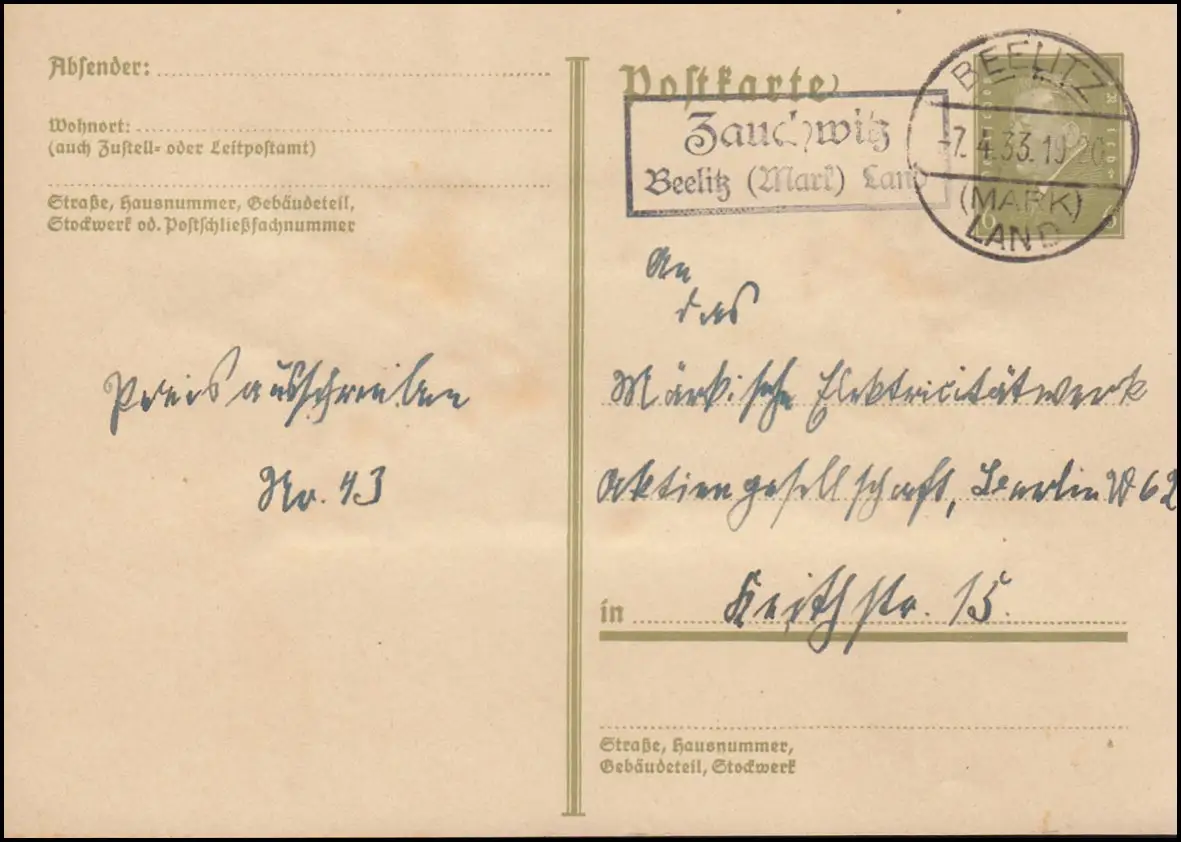 Absender:
Wohnort:
(auch Zustell- oder Leitpostamt)
Straße, Hausnummer, Gebäudeteil,
Stockwerk od. Postschließfachnummer
Preisausschreiben
Nr. 43
Postkarte
Zauchwitz
Beelitz (Mark) Land
BEELITZ
-7.4.33.19-20
(MARK)
LAND
6 6
An
das
Märkische Elektricitätwerk
Aktiengesellschaft, Berlin W 62
in Keithstr. 15.
Straße, Hausnummer,
Gebäudeteil, Stockwerk